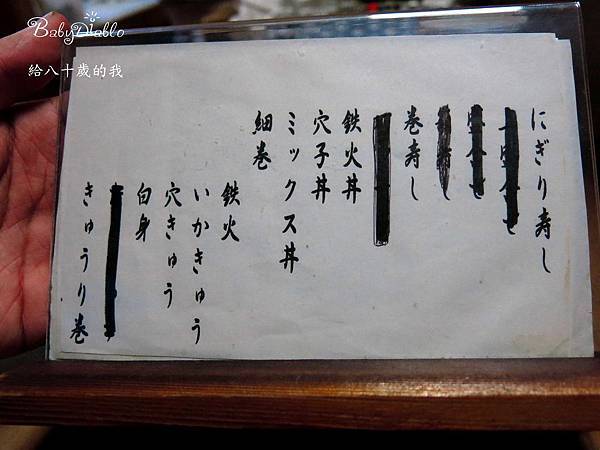 BabyDiablo
給八十歲的我
にぎり寿し
巻寿し
鉄火丼
穴子丼
ミックス丼
細巻
鉄火
いかきゅう
穴きゅう
白身
きゅうり巻